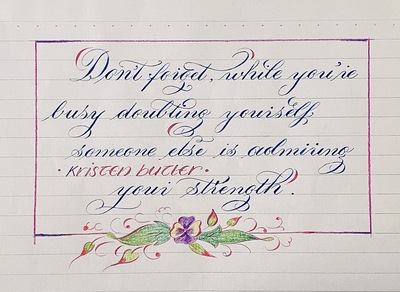 Don't forget, while you're
busy doubting yourself,
someone else is admiring
• Kristen butler •
your strength.